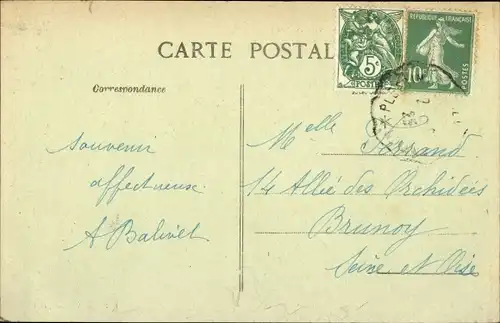 CARTE POSTAL
RÉPUBLIQUE FRANÇAISE
5c
POSTES
10c
POSTES
Correspondance
Souvenir
affectueux
A Balivet
Melle Ferrand
14 Allée des Orchidées
Brunoy
Seine et Oise